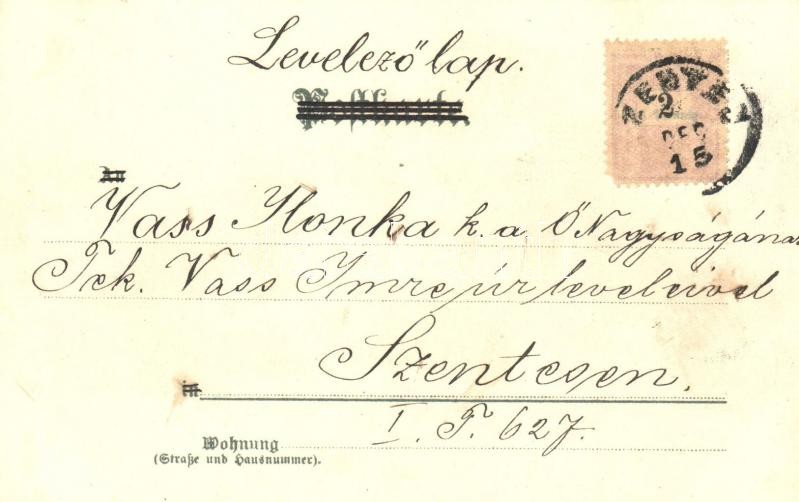 Levelező lap.
Postkarte
ZENTÁN
2
DEC
15
An
Vass Ilonka k. a Ő Nagyságának
Tek. Vass Imre úr leveleivel
Szentesen.
in
I. T. 627.
Wohnung
(Straße und Hausnummer).